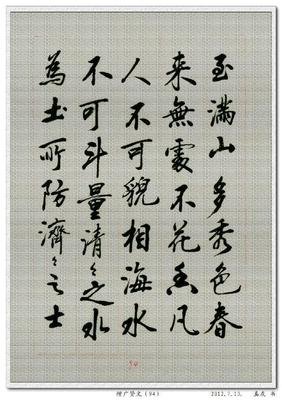 至滿山多秀色春
来無處不花香凡
人不可貌相海水
不可斗量清々之水
為土所防濟々之士
94
增广贤文（94）
2012.7.13. 书